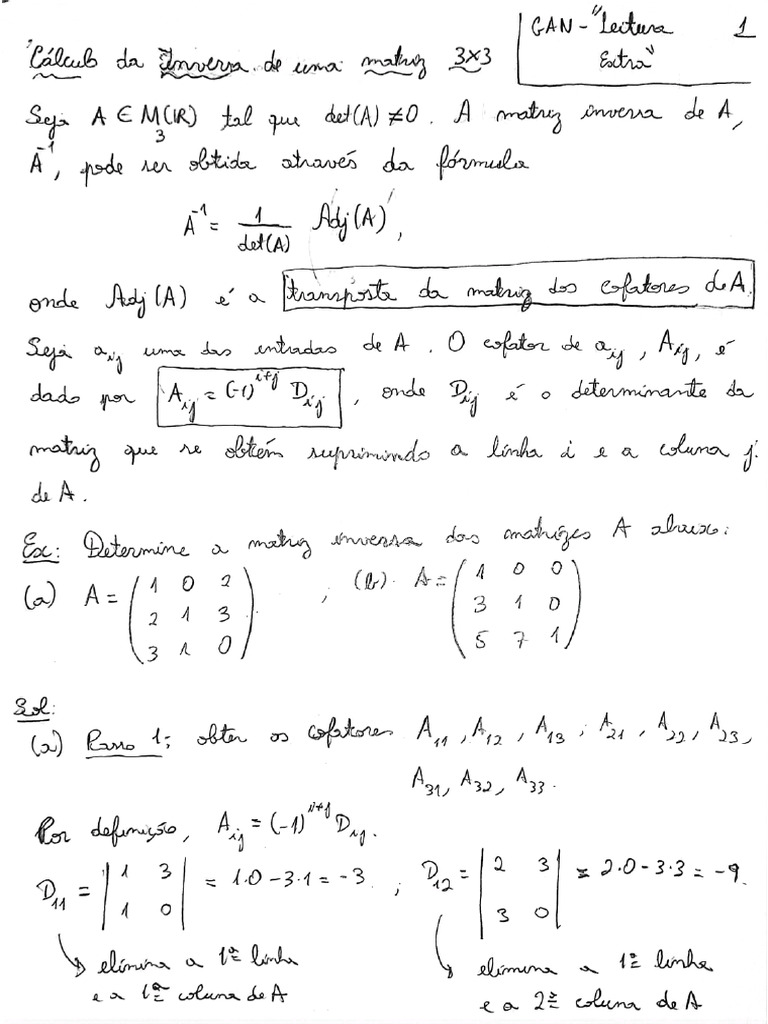 GAN - "Leitura Extra" 1
Cálculo da Inversa de uma matriz 3x3
Seja A ∈ M₃(IR) tal que det(A) ≠ 0. A matriz inversa de A,
A⁻¹, pode ser obtida através da fórmula
A⁻¹ = 1/det(A) Adj(A),
onde Adj(A) é a transposta da matriz dos cofatores de A.
Seja aᵢⱼ uma das entradas de A. O cofator de aᵢⱼ, Aᵢⱼ, é
dado por Aᵢⱼ = (-1)ⁱ⁺ʲ Dᵢⱼ, onde Dᵢⱼ é o determinante da
matriz que se obtém suprimindo a linha i e a coluna j
de A.
Ex: Determine a matriz inversa das matrizes A abaixo:
(a) A = (1 0 2; 2 1 3; 3 1 0) ; (b) A = (1 0 0; 3 1 0; 5 7 1)
Sol:
(a) Passo 1: obter os cofatores A₁₁, A₁₂, A₁₃, A₂₁, A₂₂, A₂₃,
A₃₁, A₃₂, A₃₃.
Por definição, Aᵢⱼ = (-1)ⁱ⁺ʲ Dᵢⱼ.
D₁₁ = |1 3; 1 0| = 1.0 - 3.1 = -3 ; D₁₂ = |2 3; 3 0| = 2.0 - 3.3 = -9.
elimina a 1ª linha
e a 1ª coluna de A
elimina a 1ª linha
e a 2ª coluna de A